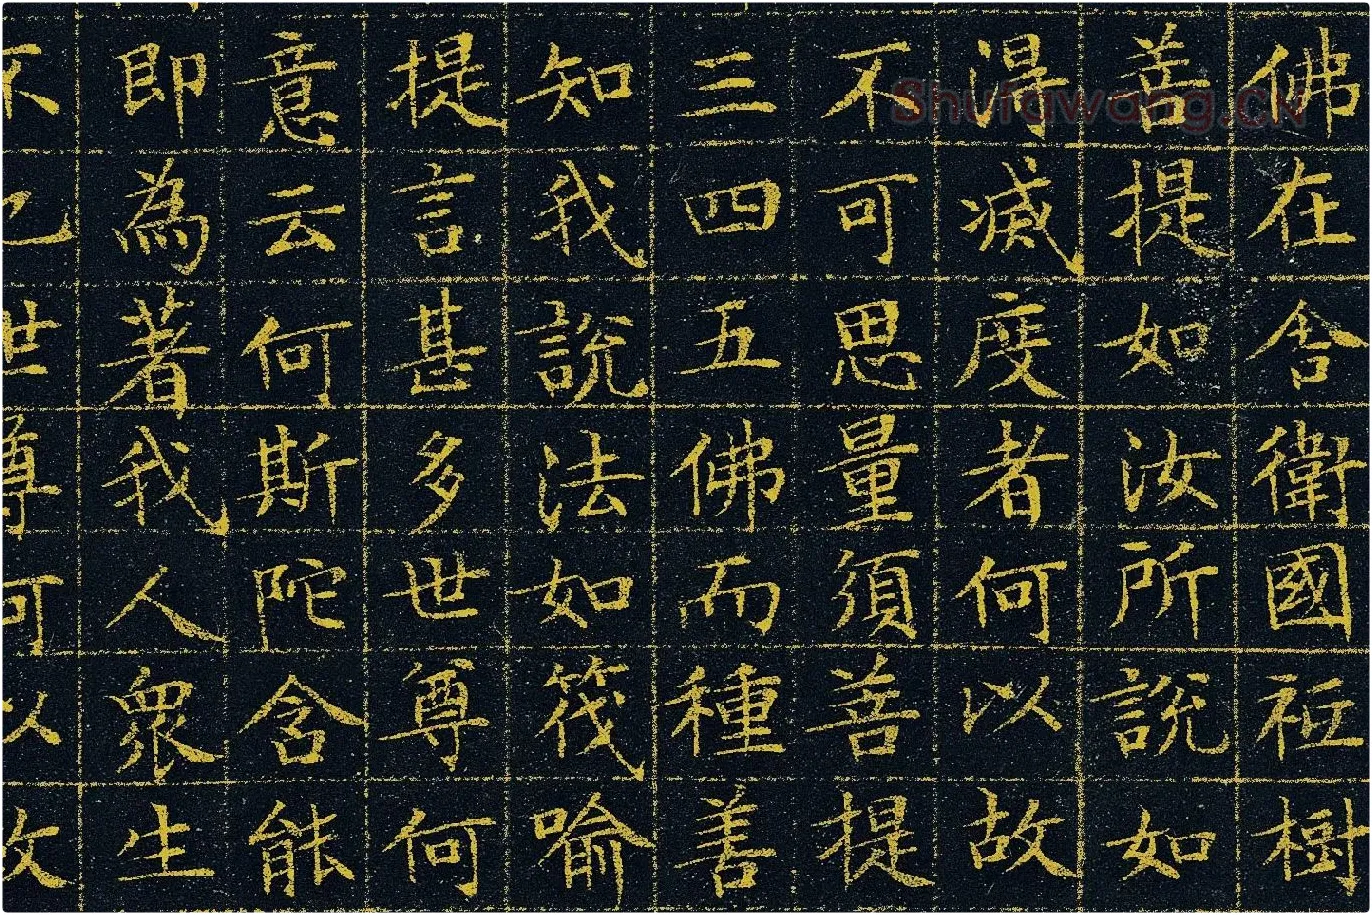 佛在舍衛國祇樹
菩提如汝所說如
得滅度者何以故
不可思量須菩提
三四五佛而種善
知我說法如筏喻
提言甚多世尊何
意云何斯陀含能
即為著我人眾生
不也世尊何以故
Shufawang.CN